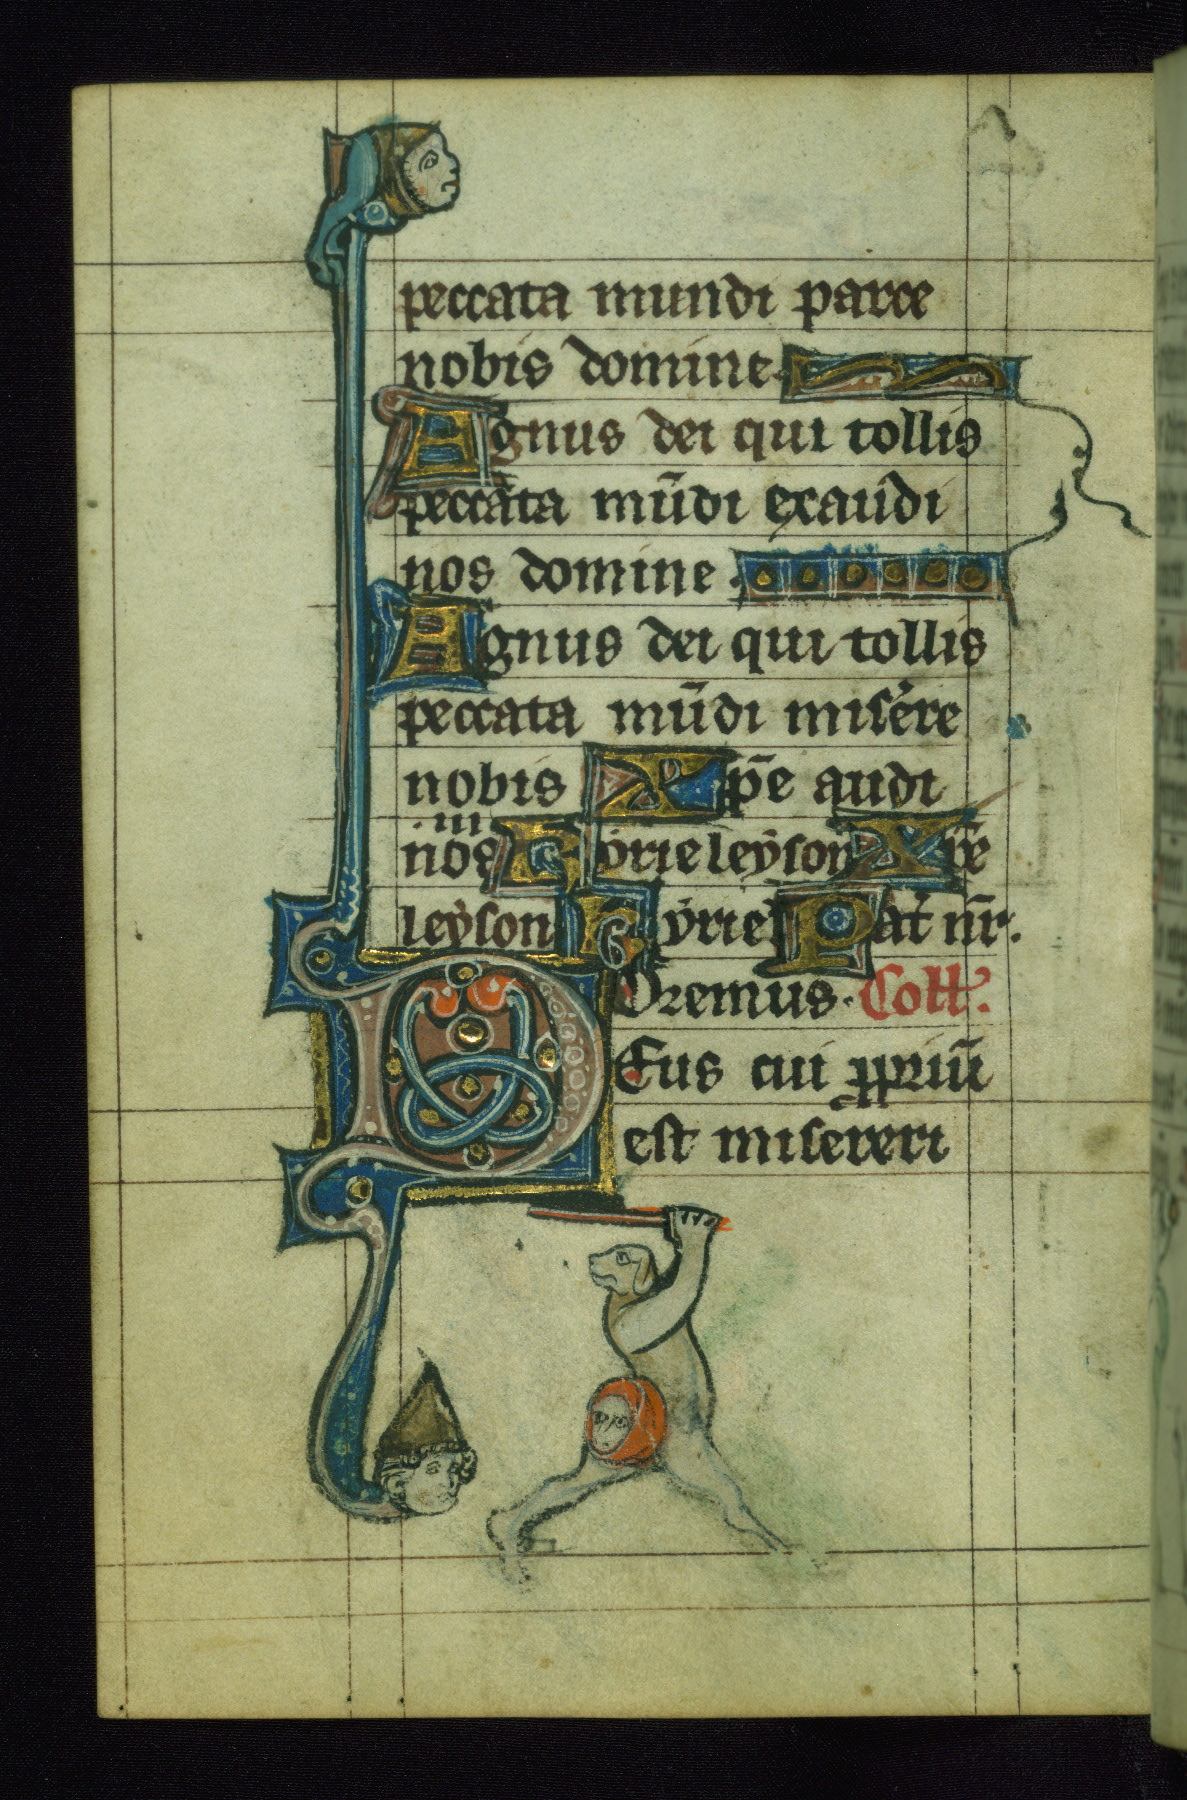 peccata mundi parce
nobis domine.
Agnus dei qui tollis
peccata mūdi exaudi
nos domine.
Agnus dei qui tollis
peccata mūdi misere
nobis Xp̄e audi
.iii.
nos Kyrieleyson Xp̄e
leyson Kyriel Pat̄ nr̄.
Oremus. Coll̄.
Deus cui ꝓpriū
est misereri